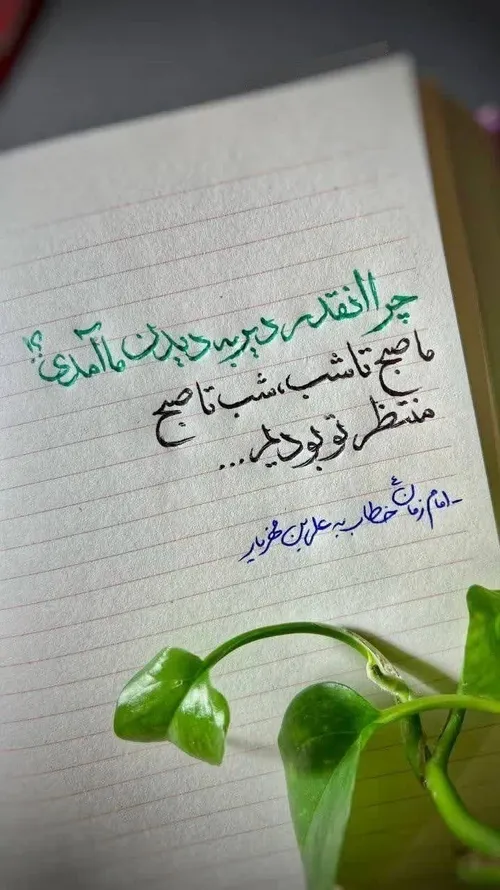 چرا انقدر دیر به دیدن ما آمدی؟!
ما صبح تا شب، شب تا صبح
منتظر تو بودیم...
- امام زمان خطاب به علی بن مهزیار